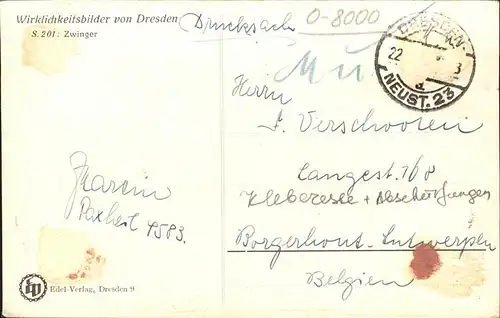 Wirklichkeitsbilder von Dresden
S. 201: Zwinger
Drucksach
0-8000
DRESDEN-
22
NEUST. 23
a
Herrn
J. Verschooten
Langest. 168
Klebereste + Abschürfungen
Borgerhout-Antwerpen
Belgien
4583.
Edel-Verlag, Dresden 9